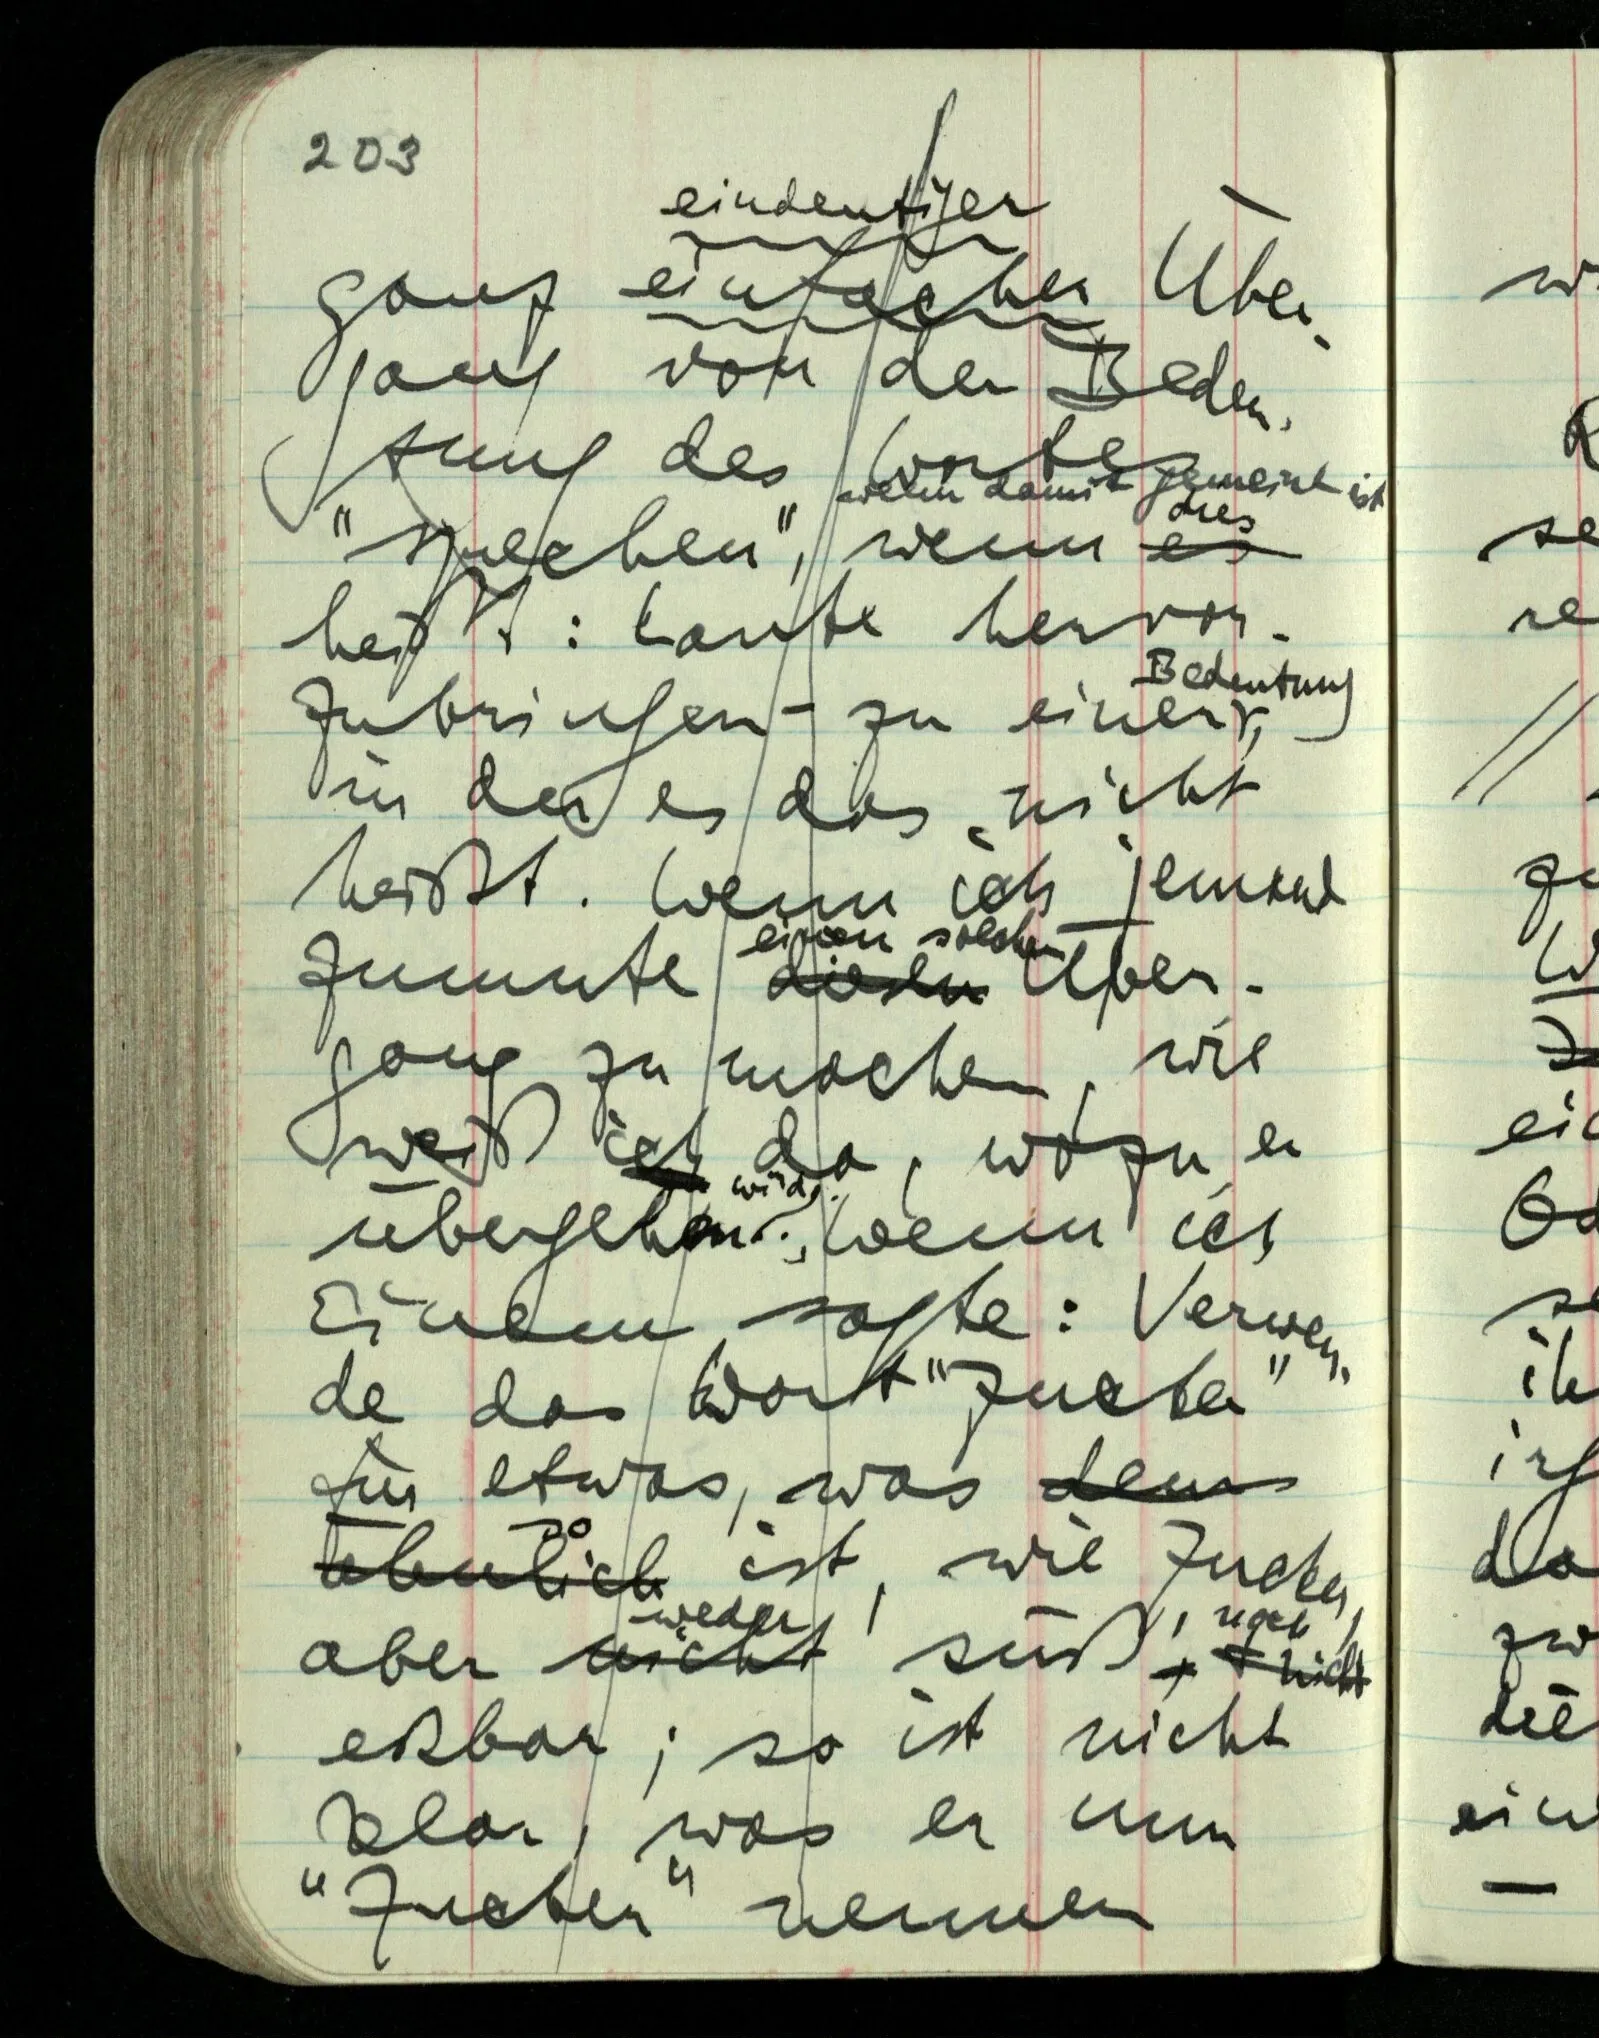 203
eindeutiger
ganz einfacher Über-
gang von der Bedeu-
tung des Wortes
wenn damit gemeint ist
dies
"sprechen", wenn es
heißt: Laute hervor-
Bedeutung
zubringen – zu einer,
in der es das nicht
heißt. Wenn ich jemand
einen solchen
zumute diesen Über-
gang zu machen, wie
weiß ich da, wozu er
würde
übergehen. Wenn ich
Einem sagte: Verwen-
de das Wort "Zucker"
für etwas, was dem
so
ähnlich ist, wie Zucker,
weder noch
aber nicht süß, + nicht
eßbar; so ist nicht
klar, was er nun
"Zucker" nennen